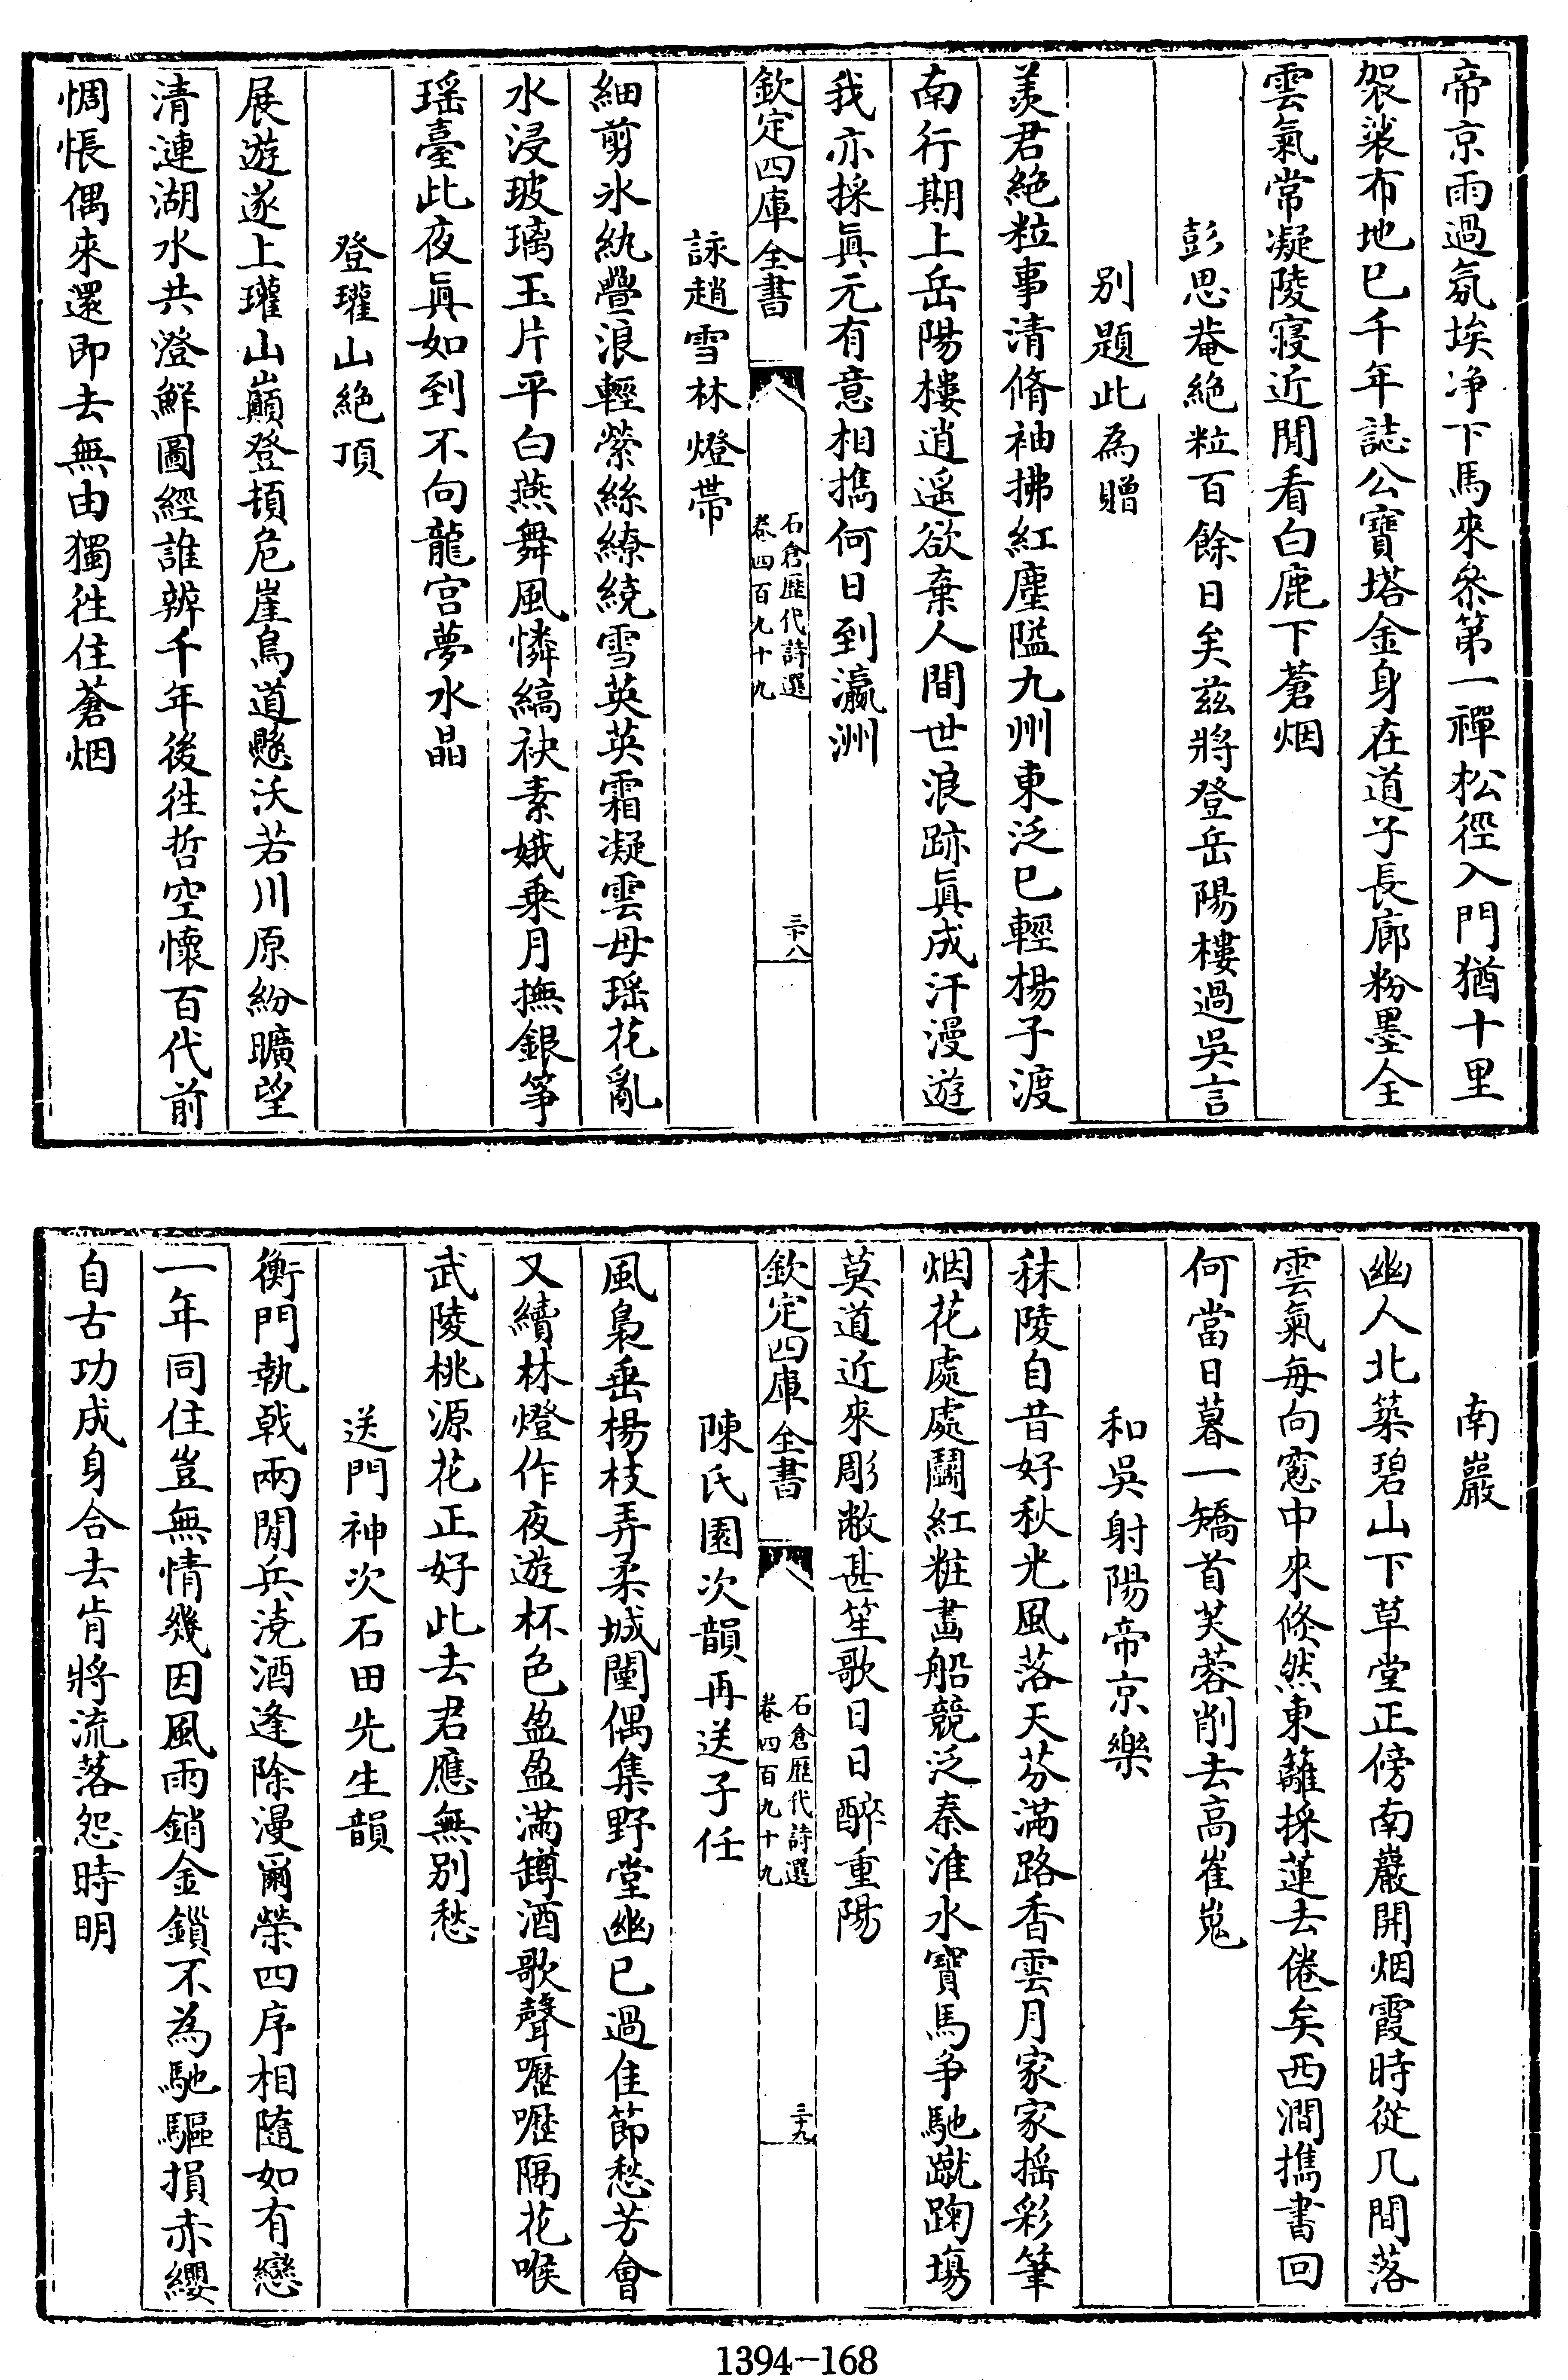 帝京雨過氛埃浄下馬來叅第一禪松徑入門猶十里
袈裟布地已千年誌公寶塔金身在道子長廊粉墨全
雲氣常凝陵寢近閒看白鹿下蒼烟
彭思菴絶粒百餘日矣兹將登岳陽樓過吳言
别題此為贈
羨君絶粒事清脩袖拂紅塵隘九州東泛已輕楊子渡
南行期上岳陽樓逍遥欲棄人間世浪跡眞成汗漫遊
我亦採眞元有意相擕何日到瀛洲
欽定四庫全書
石倉歴代詩選
卷四百九十九
三十八
詠趙雪林燈帶
細剪氷紈疊浪輕縈絲繚繞雪英英霜凝雲母瑶花亂
水浸玻璃玉片平白燕舞風憐縞袂素娥乗月撫銀筝
瑶臺此夜眞如到不向龍宫夢水晶
登瓘山絶頂
展遊遂上瓘山巓登頓危崖鳥道懸沃若川原紛曠望
清漣湖水共澄鮮圖經誰辨千年後徃哲空懷百代前
惆悵偶來還即去無由獨徃住蒼烟
南巖
幽人北築碧山下草堂正傍南巖開烟霞時從几間落
雲氣每向窻中來倐然東籬採蓮去倦矣西澗擕書回
何當日暮一矯首芙蓉削去高崔嵬
和吳射陽帝京樂
秣陵自昔好秋光風落天芬滿路香雲月家家摇彩筆
烟花處處鬭紅粧畵船競泛秦淮水寶馬爭馳蹴踘塲
莫道近來彫敝甚笙歌日日醉重陽
欽定四庫全書
石倉歴代詩選
卷四百九十九
三十九
陳氏園次韻再送子任
風裊垂楊枝弄柔城闉偶集野堂幽已過佳節愁芳會
又續林燈作夜遊杯色盈盈滿罇酒歌聲嚦嚦隔花喉
武陵桃源花正好此去君應無别愁
送門神次石田先生韻
衡門執戟兩閒兵澆酒逢除漫爾榮四序相隨如有戀
一年同住豈無情幾因風雨銷金鎻不為馳驅損赤纓
自古功成身合去肯將流落怨時明
1394-168